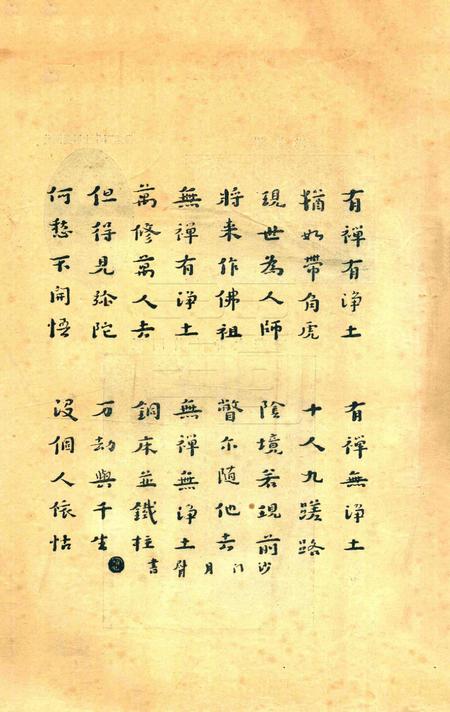 有禪有淨土
猶如帶角虎
現世為人師
將来作佛祖
無禪有淨土
萬修萬人去
但得見弥陀
何愁不開悟
有禪無淨土
十人九蹉路
陰境若現前
瞥尔随他去
無禪無淨土
銅床並鐵柱
万劫與千生
没個人依怙
沙门月臂書